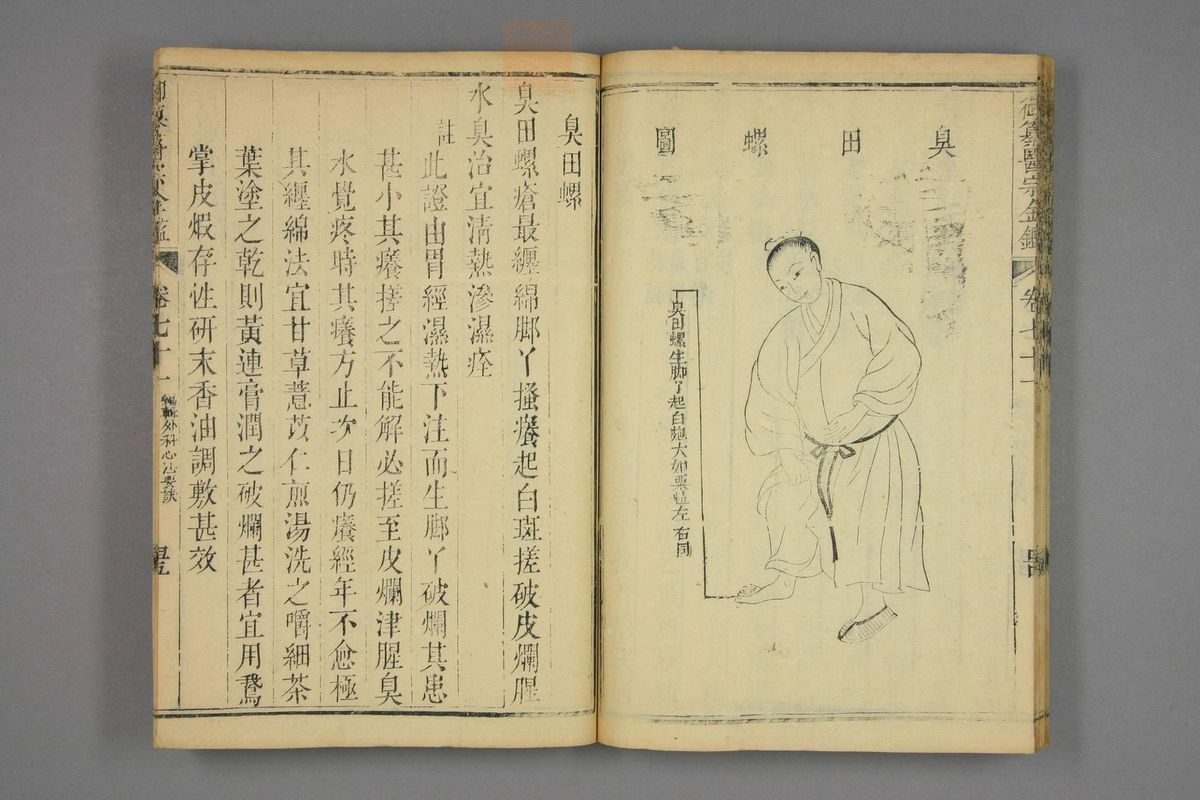 御纂醫宗金鑑
卷七十一
臭田螺圖
臭田螺生脚了起白皰大如粟粒左右同
臭田螺
臭田螺瘡最纏綿脚丫搔癢起白斑搓破皮爛腥
水臭治宜清熱滲濕痊
註此證由胃經濕熱下注而生脚丫破爛其患
甚小其癢搓之不能解必搓至皮爛津腥臭
水覺疼時其癢方止次日仍癢經年不愈極
其纏綿法宜甘草薏苡仁煎湯洗之嚼細茶
葉塗之乾則黃連膏潤之破爛甚者宜用鵞
掌皮煆存性研末香油調敷甚效
卷七十一
編輯外科心法要訣